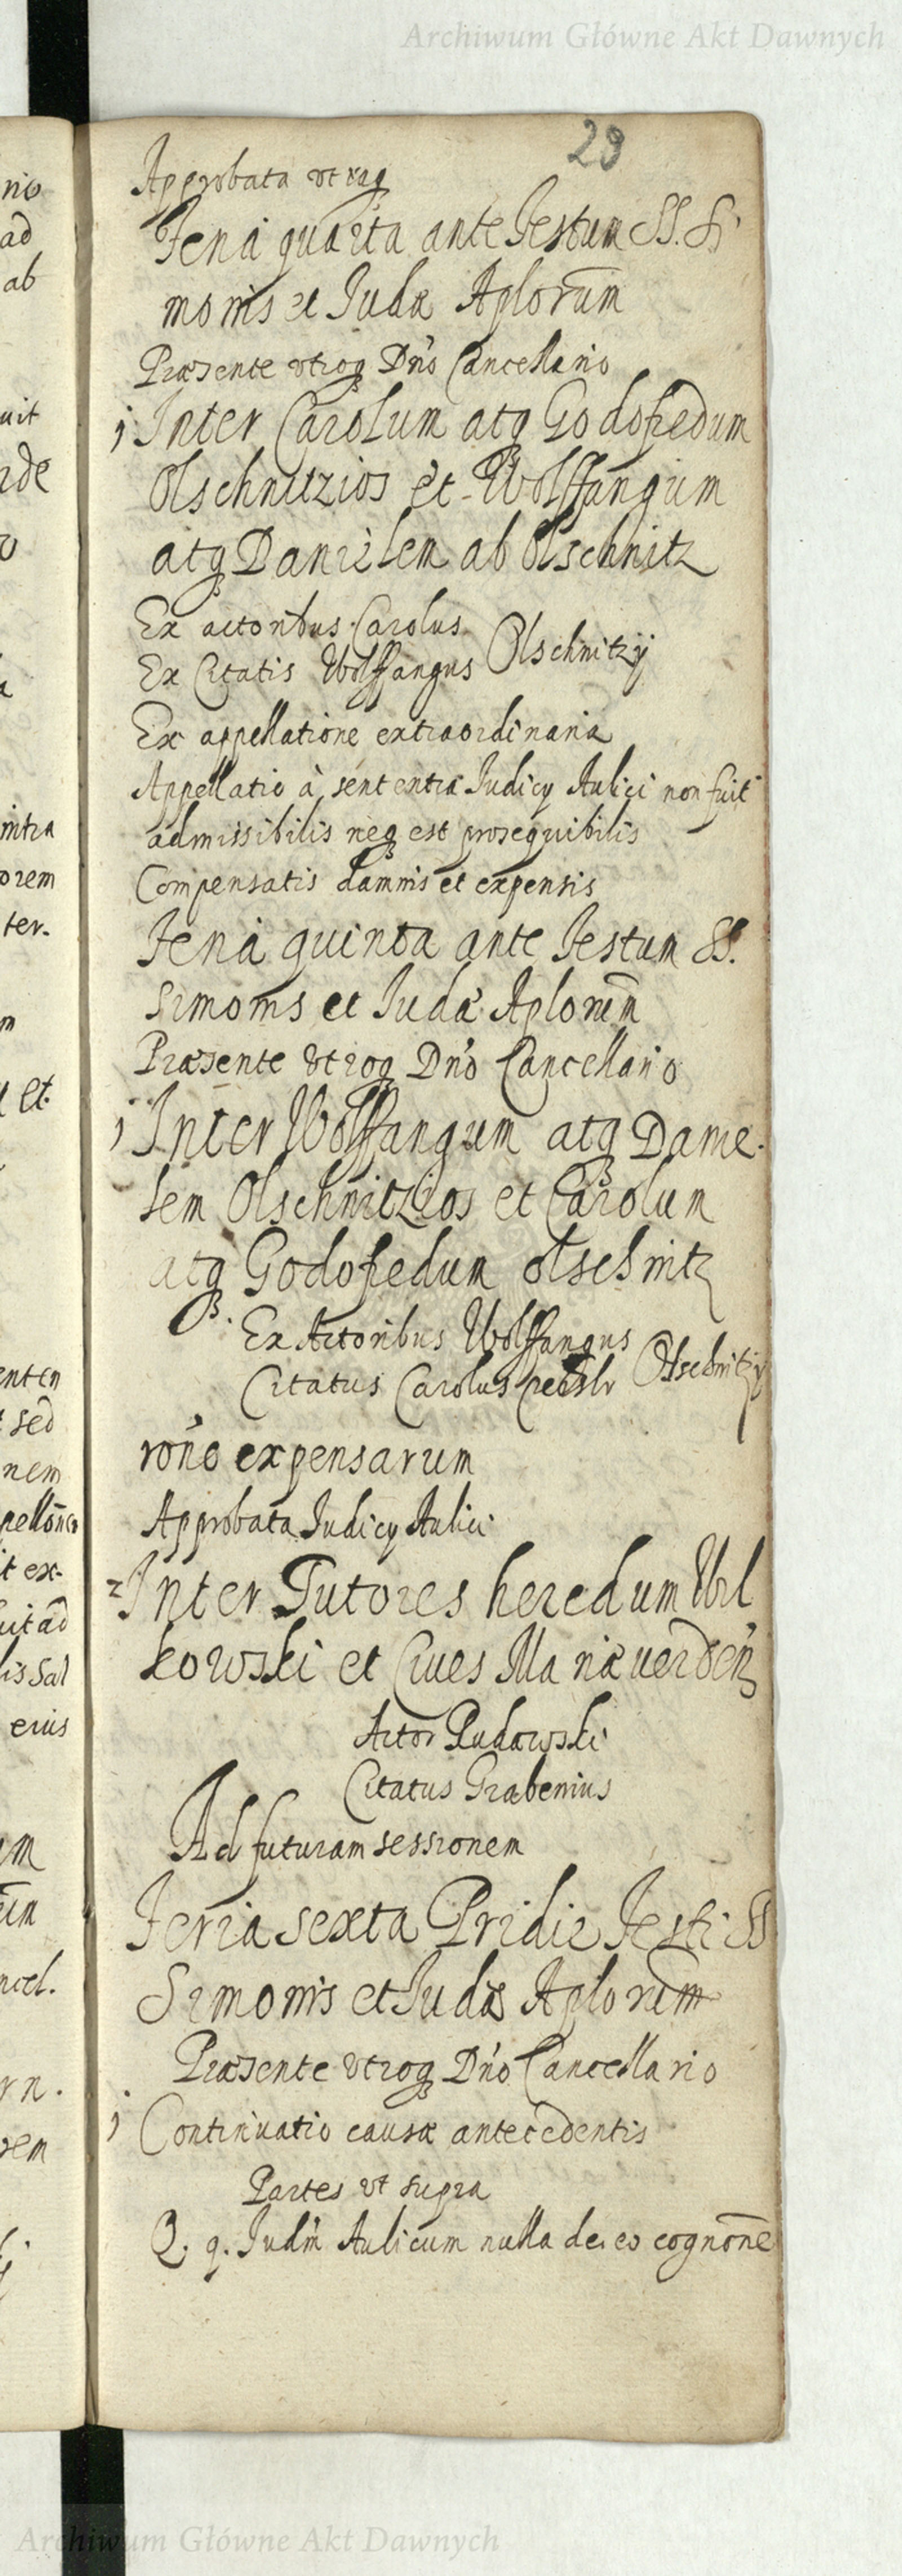 Archiwum Główne Akt Dawnych
29
nis
ad
ab
uit
rde
mtra
orem
ter.
et.
enten
sed
nem
pellōnes
it ex-
uit ad
lis Sal
eius
ncel.
rn.
rem
Approbata vtraq
Feria quarta ante Festum SS. Si
monis et Iudæ Aplorum
Præsente vtroq Dno Cancellario
1 Inter Carolum atq Godofredum
Olschnitzios et Wolffangum
atq Danielem ab Olschnitz
Ex actoribus Carolus
Ex Citatis Wolffangus Olschnitzÿ
Ex appellatione extraordinaria
Appellatio à sententia Iudicÿ Aulici non fuit
admissibilis neq est prosequibilis
Compensatis damnis et expensis
Feria quinta ante Festum SS.
Simonis et Iudæ Aplorum
Præsente vtroq Dno Cancellario
1 Inter Wolffangum atq Danie
lem Olschnitzios et Carolum
atq Godofredum olschnitz
Ex Actoribus Wolffangus
Citatus Carolus Olschnitzÿ
rōne expensarum
Approbata Iudicÿ Aulici
2 Inter Tutores heredum Wil
kowski et Ciues Mariæuerden
Actor Rudawski
Citatus Grabenius
Ad futuram sessionem
Feria sexta Pridie Festi SS
Simonis et Iudæ Aplorum
Præsente vtroq Dno Cancellario
1 Continuatio causæ antecedentis
Partes vt supra
Q. q. Iudm Aulicum nulla de eo cognōne
Archiwum Główne Akt Dawnych